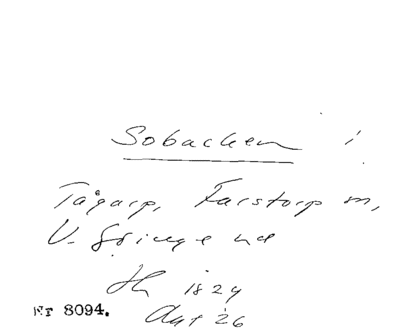 Sobacken i
Tågarp, Farstorp sn,
V. Göinge hd
1829
Nr 8094.